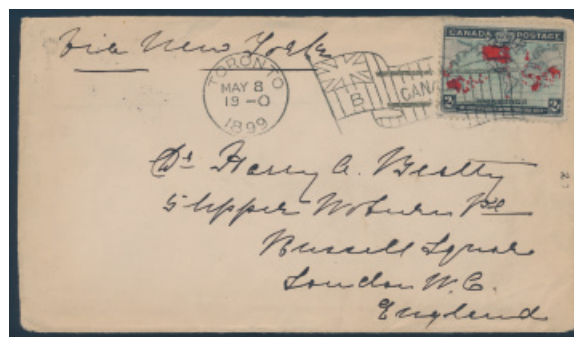 via New York
TORONTO
MAY 8
19-0
1899
B
CANA
CANADA POSTAGE
2
2
Dr Harry A. Beatty
5 Upper Woburn Pl
Russell Square
London W.C.
England